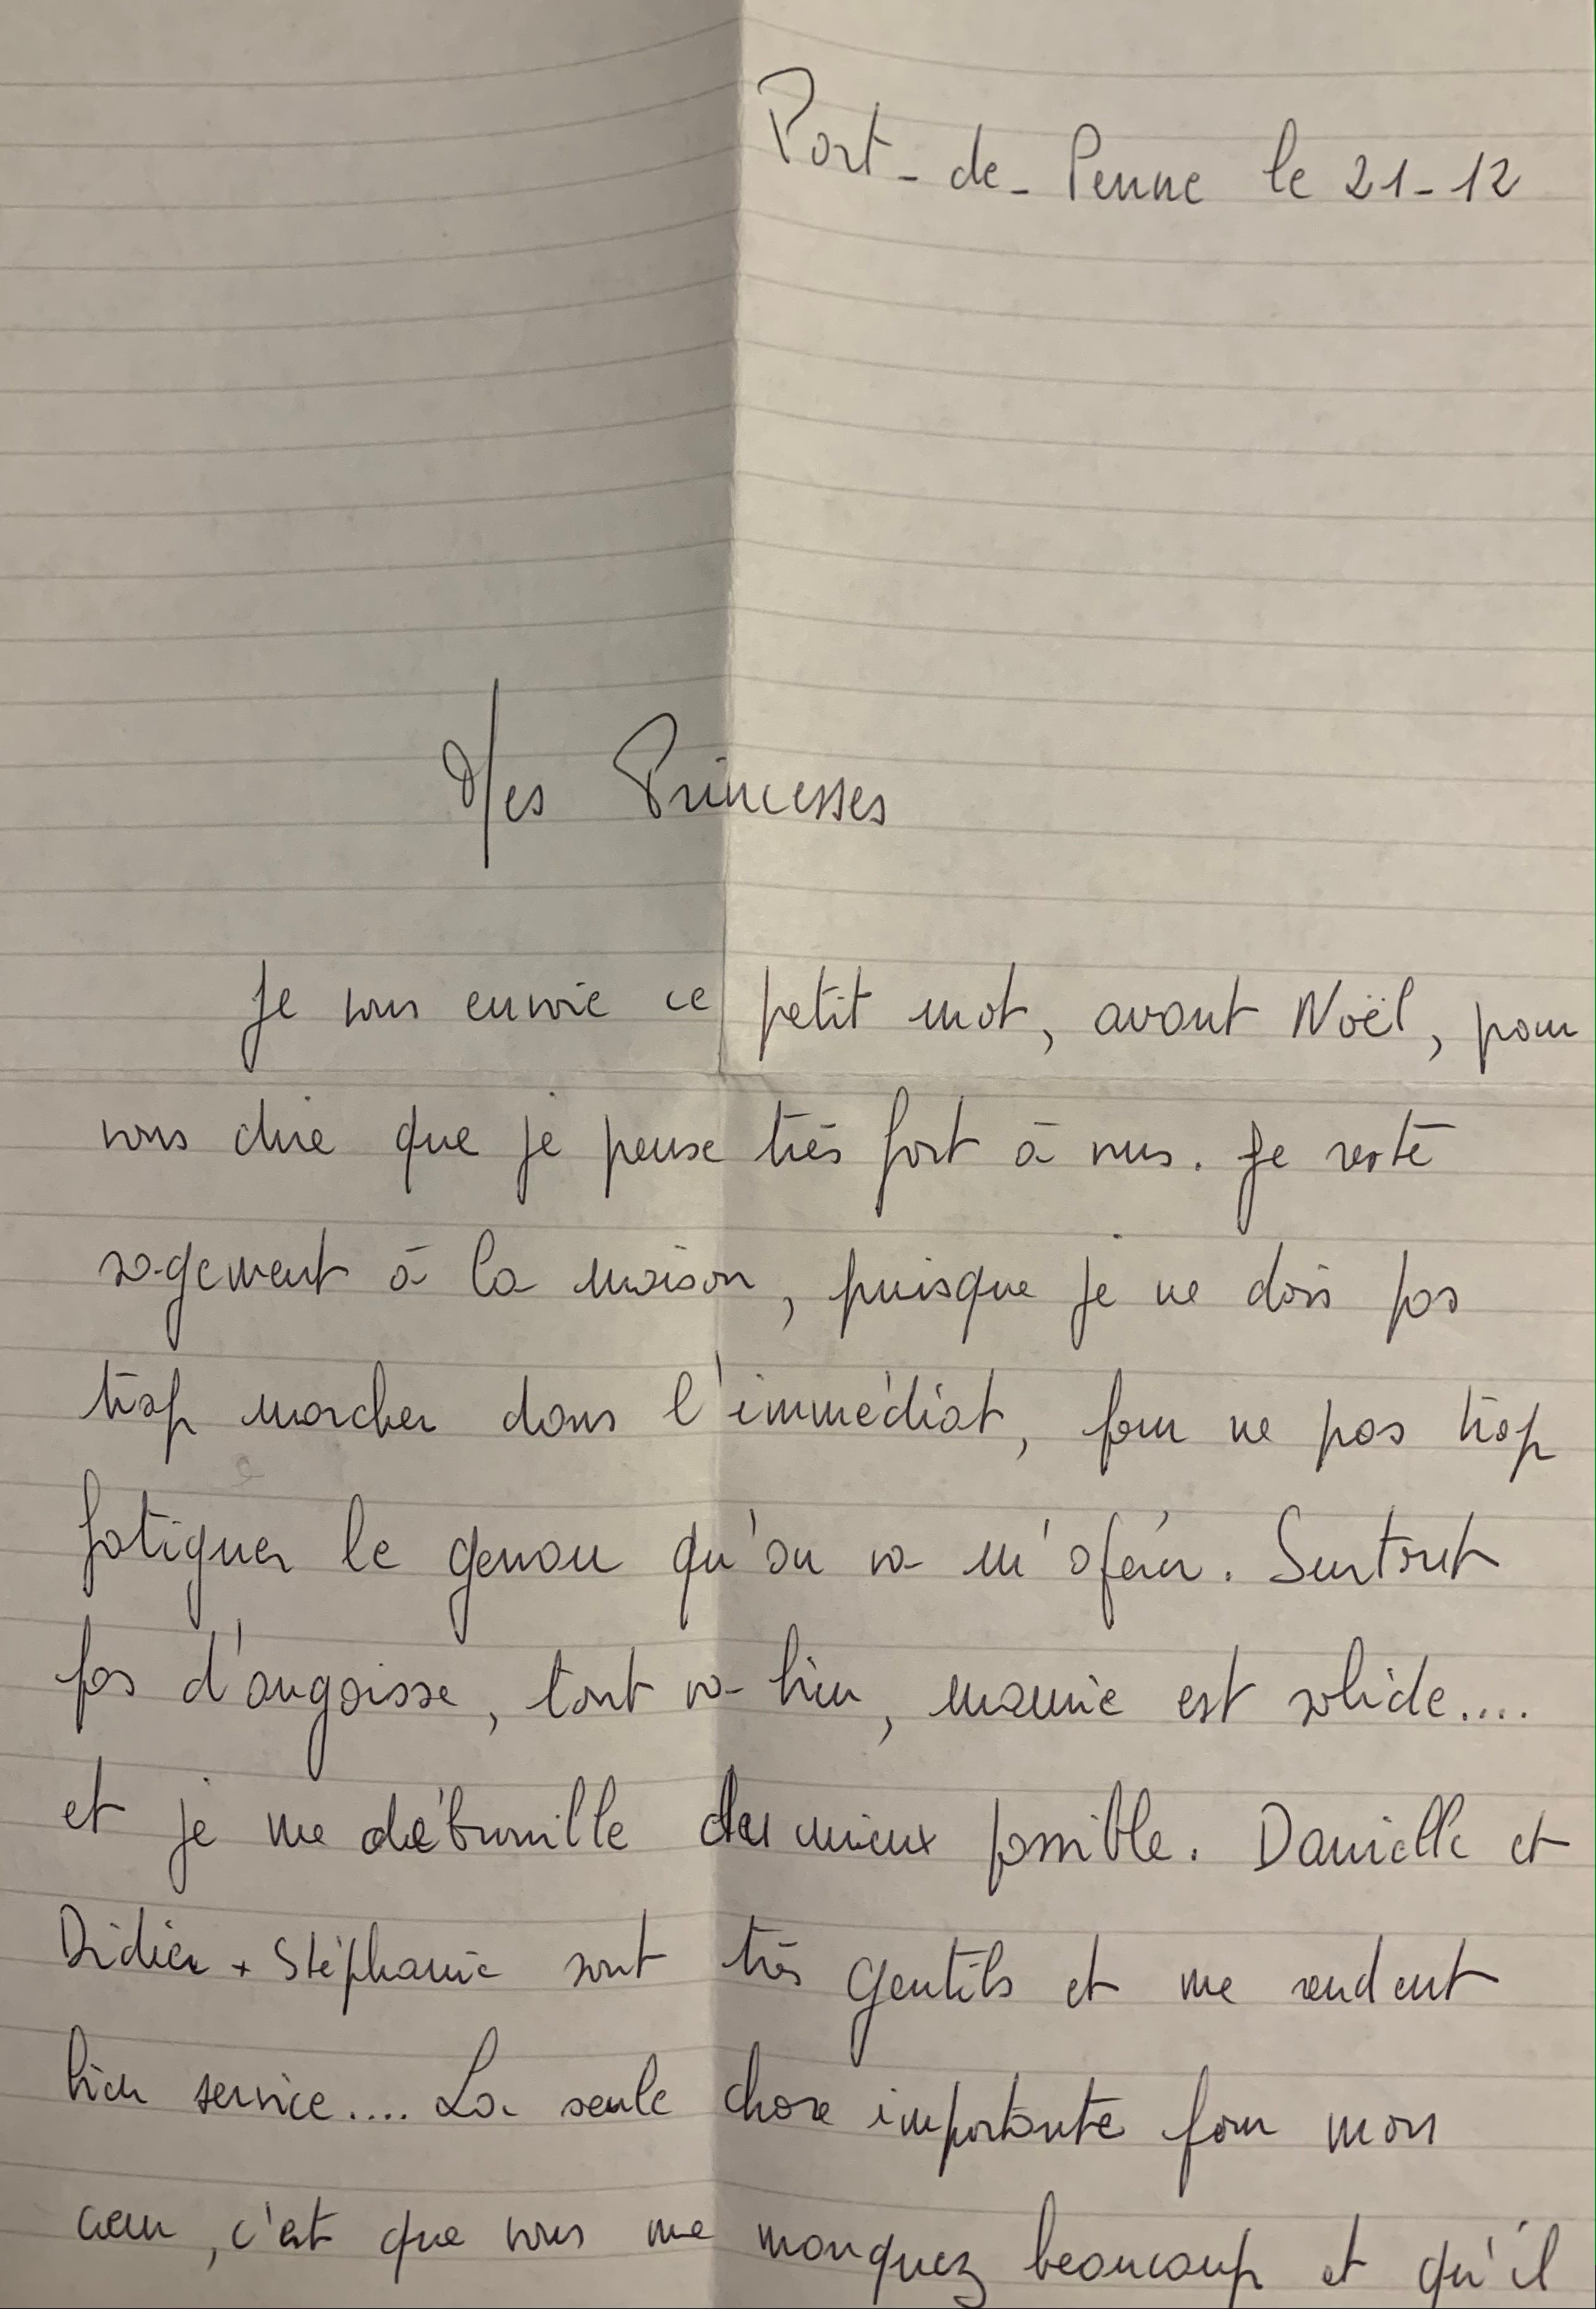 Port-de-Penne le 21-12
Mes Princesses
Je vous envoie ce petit mot, avant Noël, pour
vous dire que je pense très fort à vous. Je reste
sagement à la maison, puisque je ne dois pas
trop marcher dans l'immédiat, pour ne pas trop
fatiguer le genou qu'on va m'opérer. Surtout
pas d'angoisse, tout va bien, mamie est solide....
et je me débrouille du mieux possible. Danielle et
Didier + Stéphanie sont très gentils et me rendent
bien service.... La seule chose importante pour mon
cœur, c'est que vous me manquez beaucoup et qu'il